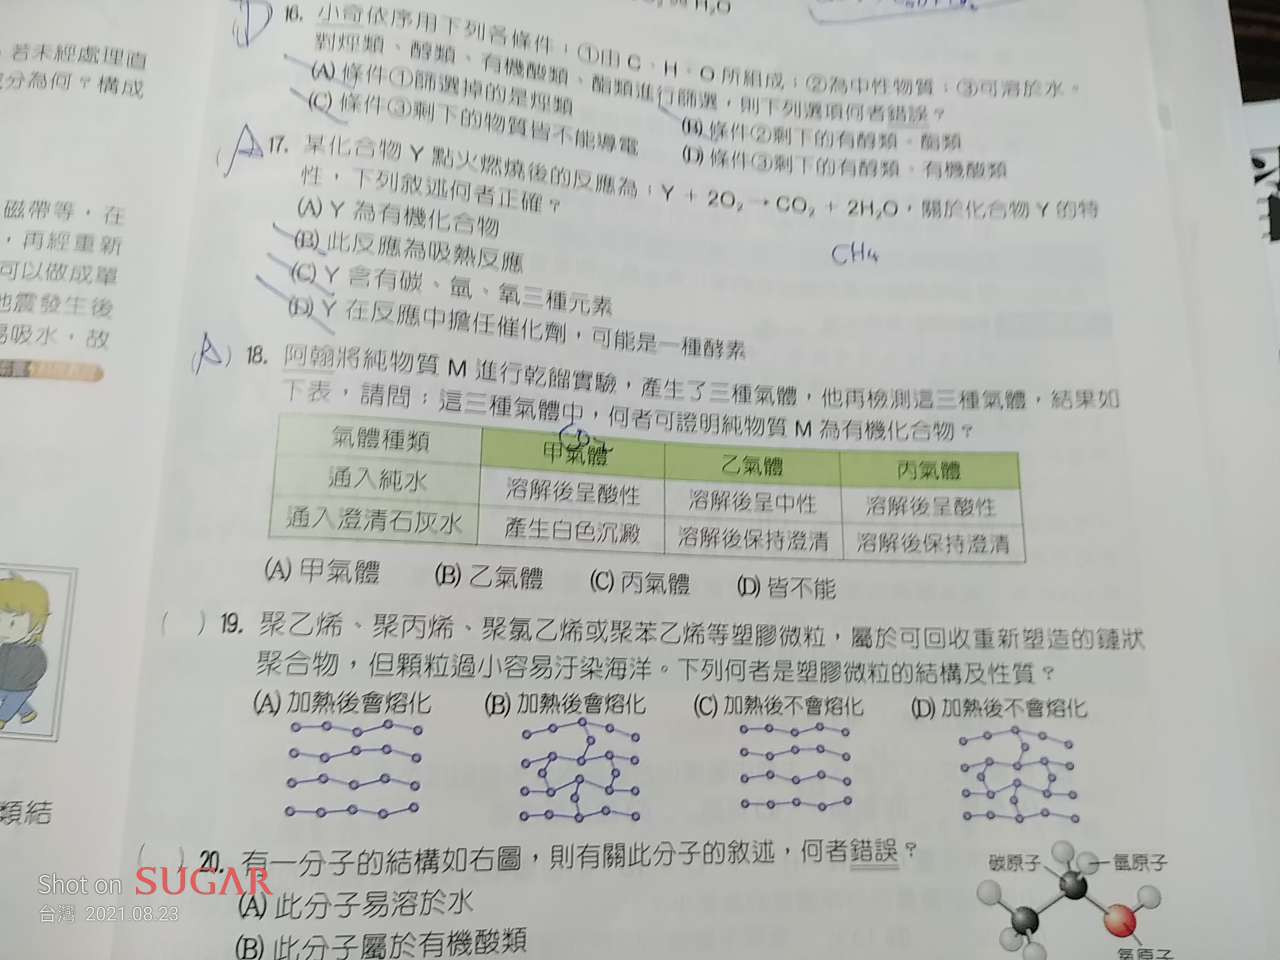 若未經處理直
分為何？構成
磁帶等，在
，再經重新
可以做成單
地震發生後
易吸水，故
類結
H₂O
(D) 16. 小奇依序用下列各條件：①由 C、H、O 所組成；②為中性物質；③可溶於水。
對烴類、醇類、有機酸類、酯類進行篩選，則下列選項何者錯誤？
(A) 條件①篩選掉的是烴類 (B) 條件②剩下的有醇類、酯類
(C) 條件③剩下的物質皆不能導電 (D) 條件③剩下的有醇類、有機酸類
(A) 17. 某化合物 Y 點火燃燒後的反應為：Y + 2O₂ → CO₂ + 2H₂O，關於化合物 Y 的特
性，下列敘述何者正確？
(A) Y 為有機化合物
CH₄
(B) 此反應為吸熱反應
(C) Y 含有碳、氫、氧三種元素
(D) Y 在反應中擔任催化劑，可能是一種酵素
(A) 18. 阿翰將純物質 M 進行乾餾實驗，產生了三種氣體，他再檢測這三種氣體，結果如
下表，請問：這三種氣體中，何者可證明純物質 M 為有機化合物？
氣體種類 甲氣體 乙氣體 丙氣體
通入純水 溶解後呈酸性 溶解後呈中性 溶解後呈酸性
通入澄清石灰水 產生白色沉澱 溶解後保持澄清 溶解後保持澄清
(A) 甲氣體 (B) 乙氣體 (C) 丙氣體 (D) 皆不能
( ) 19. 聚乙烯、聚丙烯、聚氯乙烯或聚苯乙烯等塑膠微粒，屬於可回收重新塑造的鏈狀
聚合物，但顆粒過小容易汙染海洋。下列何者是塑膠微粒的結構及性質？
(A) 加熱後會熔化 (B) 加熱後會熔化 (C) 加熱後不會熔化 (D) 加熱後不會熔化
( ) 20. 有一分子的結構如右圖，則有關此分子的敘述，何者錯誤？
(A) 此分子易溶於水
(B) 此分子屬於有機酸類
碳原子 氫原子
氧原子
Shot on SUGAR
台灣 2021.08.23